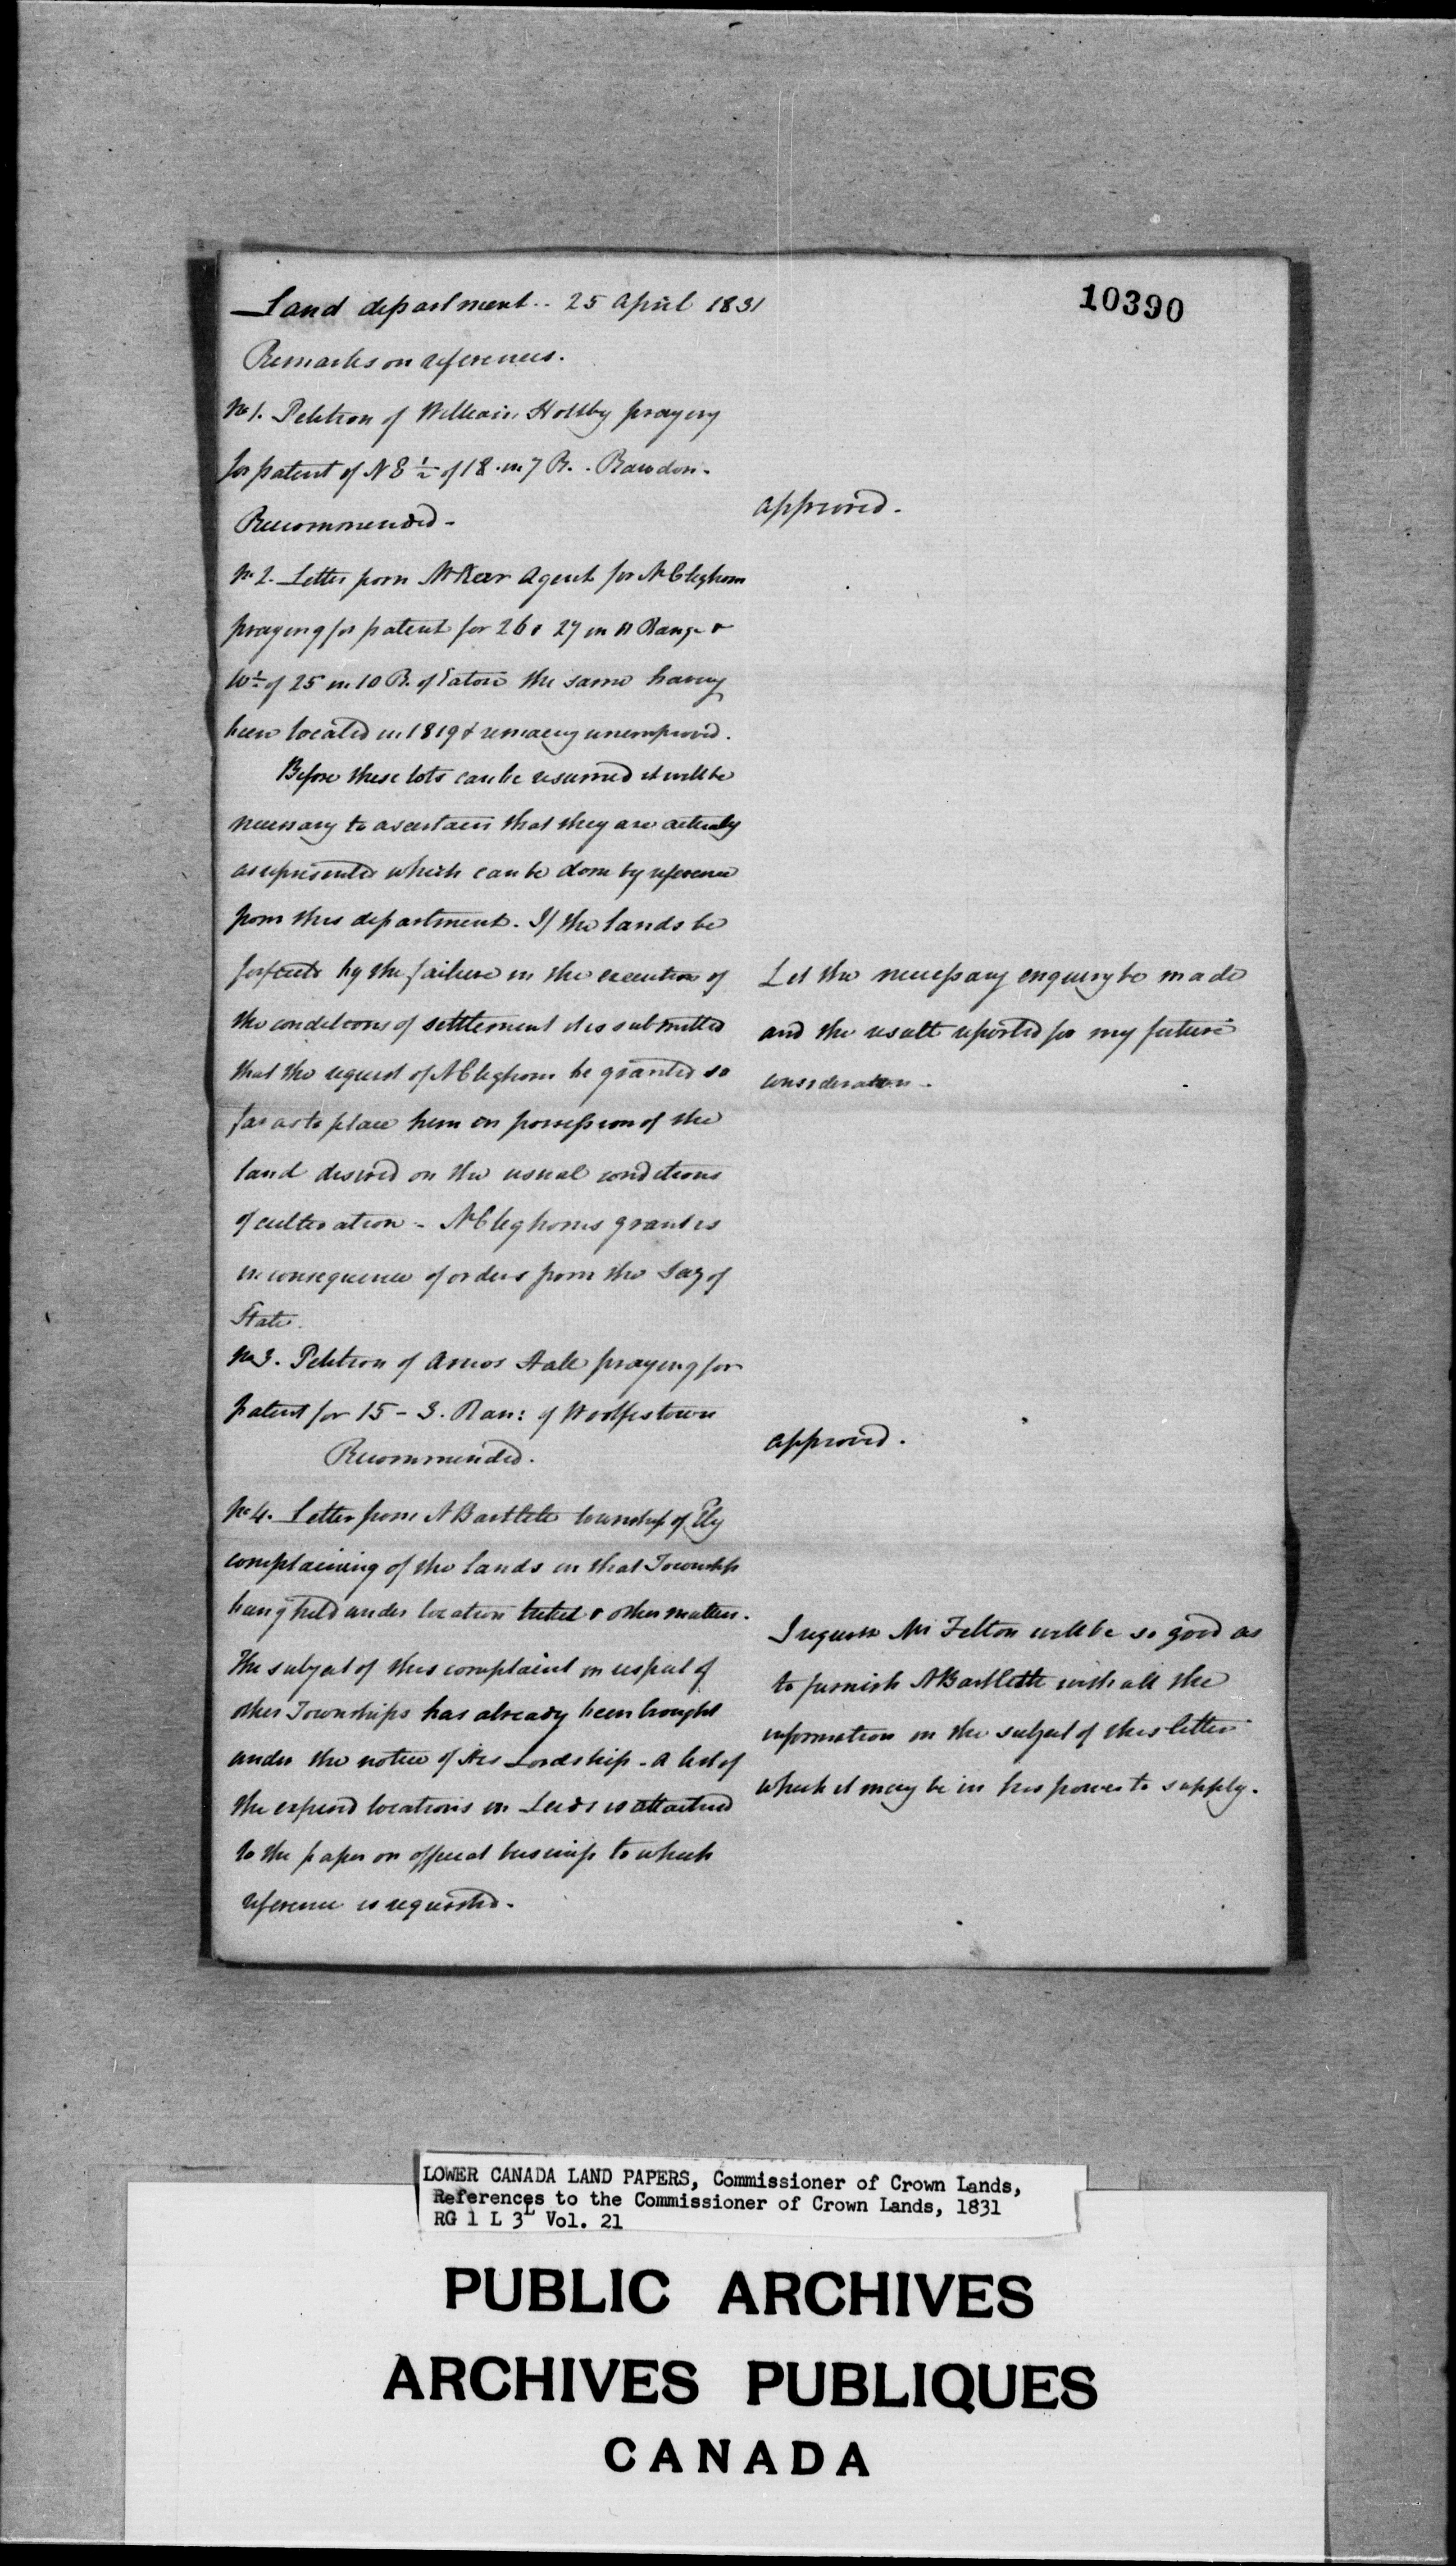 10390
Land department.. 25 April 1831
Remarks on references.
No 1. Petition of William Holtby praying
for patent of N E ½ of 18. in 7 R. . Rawdon.
Recommended -
approved.
No 2. Letter from Mr Kerr Agent for Mr Cleghorn
praying for patent for 26 & 27 in Range &
W ½ of 25 in 10 R. of Eaton the same having
been located in 1819 & remaing unimproved.
Before these lots can be resumed it will be
necessary to ascertain that they are actually
as represented which can be done by reference
from this department. If the lands be
forfeited by the failure in the execution of
the conditions of settlement it is submitted
that the request of Mr Cleghorn be granted so
far as to place him in possession of the
land desired on the usual conditions
of cultivation - Mr Cleghorns grant is
in consequence of orders from the Secy of
State.
Let the necessary enquiry be made
and the result reported for my future
consideration -
No 3. Petition of Amos Hall praying for
patent for 15 - 3. Ran: of Wolfestown
Recommended.
approved.
No 4. Letter from Mr Bartlett township of Ely
complaining of the lands in that Township
being held under location ticket & other matters.
The subject of this complaint in respect of
other Townships has already been brought
under the notice of His Lordship - A list of
the expired locations in Leeds is attached
to the paper on official business to which
reference is requested -
I request Mr Felton will be so good as
to furnish Mr Bartlett with all the
information on the subject of this letter
which it may be in his power to supply.
LOWER CANADA LAND PAPERS, Commissioner of Crown Lands,
References to the Commissioner of Crown Lands, 1831
RG 1 L 3L Vol. 21
PUBLIC ARCHIVES
ARCHIVES PUBLIQUES
CANADA